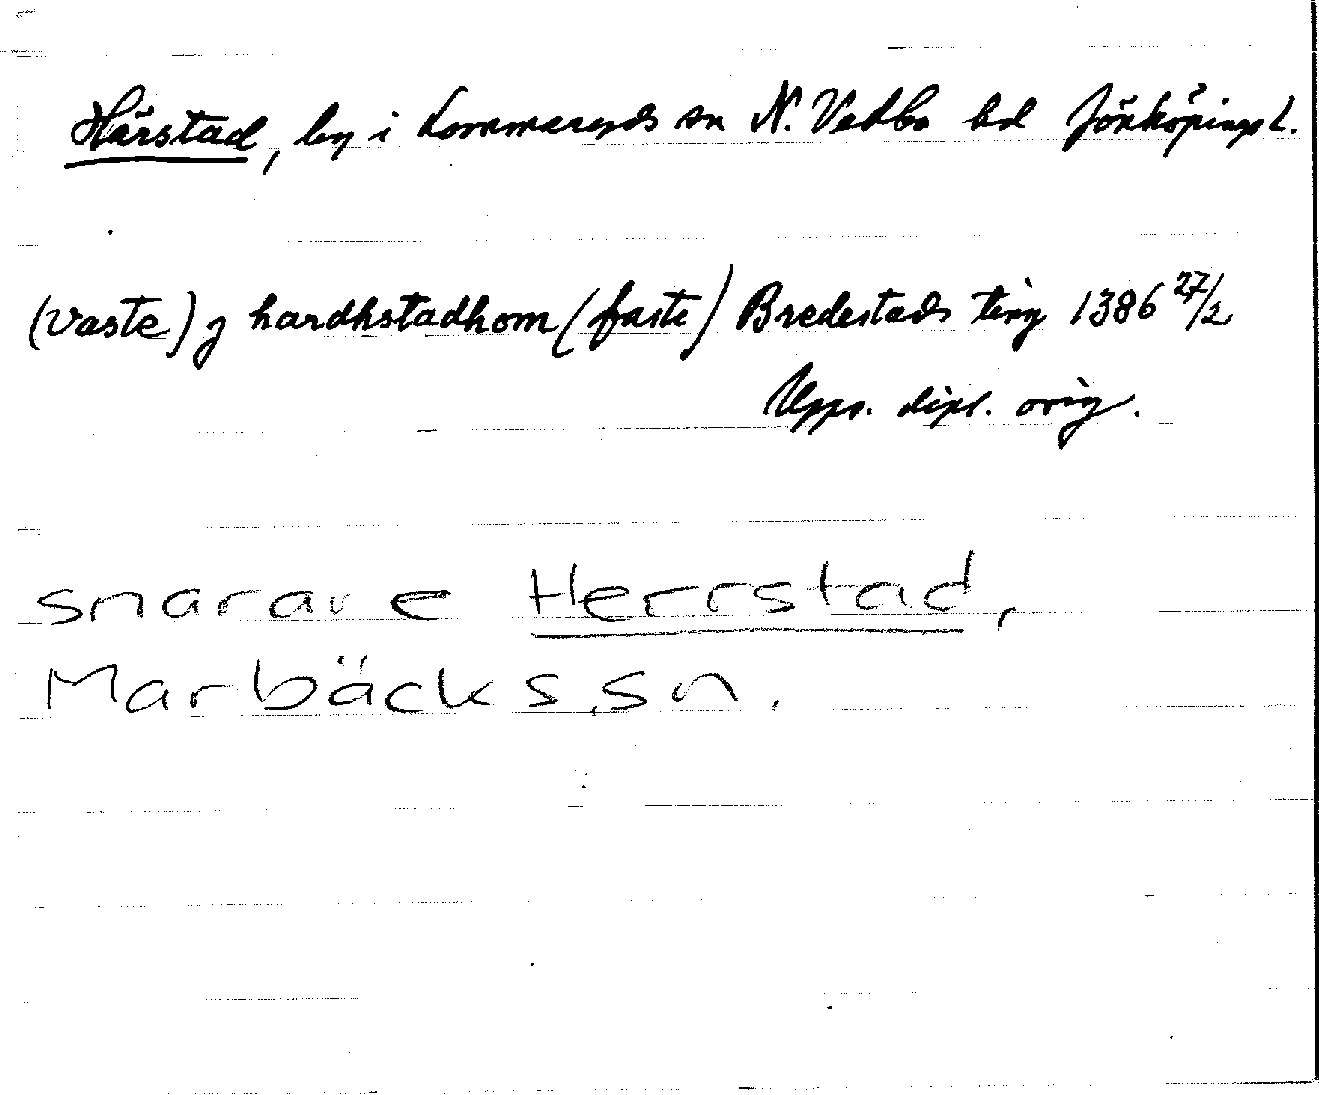 Härstad, by i Lommaryds sn N. Vedbo hd Jönköpings l.
(vaste) j hardhstadhom (faste) Bredestads ting 1386 27/2
Upps. dipl. orig.
snarare Herrstad,
Marbäcks sn.